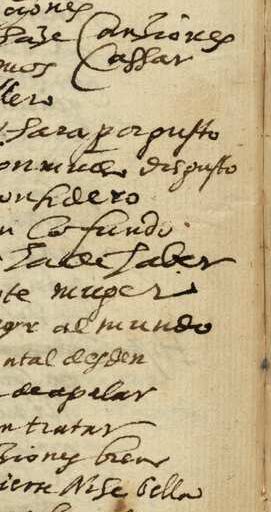 ciones
haze Canziones
mos Cassar
llero
hara por gusto
disgusto
onsidero
n lo fundo
ha de haber
te muger
al mundo
ntal desden
de apelar
n tratar
ziones bien
Nise bella